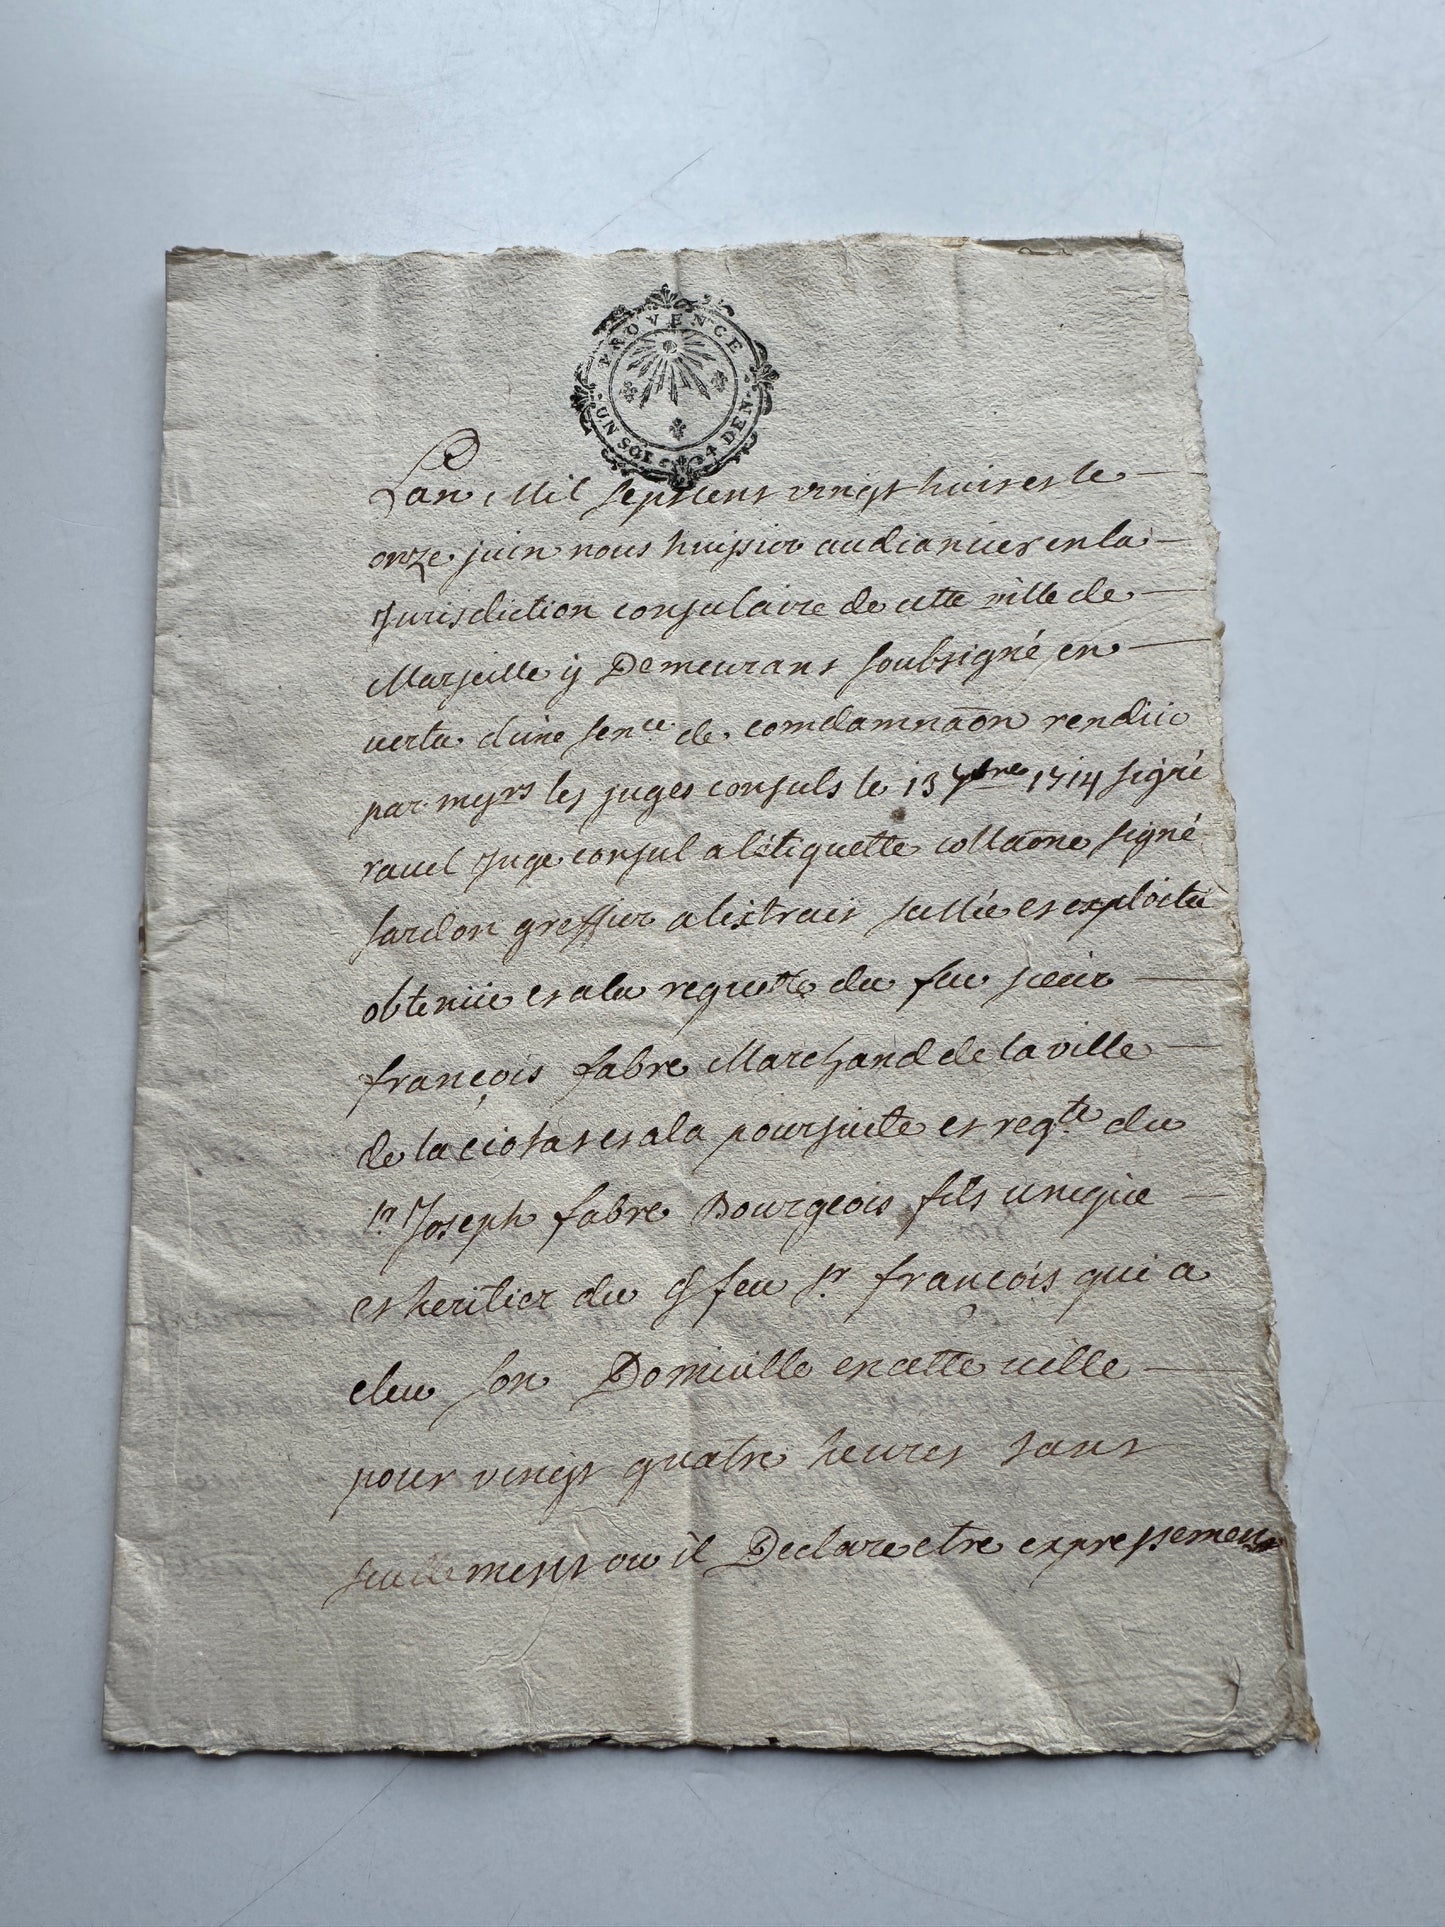 PROVENCE
UN SOL 4 DEN.
Lan Mil septcens vingt huit et le
onze juin nous huissier audiancier en la
Jurisdiction consulaire de cette ville de
Marseille y Demeurant soubsigné en
vertu dune sence de comdamnaõn rendüe
par mrs les juges consuls le 13 7bre 1714 signé
ravel Juge consul a létiquette collaõne signé
sardon greffier a lextrait sellée et exploitée
obtenüe et a la requette du feu sieur
françois fabre Marchand de la ville
de la ciotat et a la poursuite et reqte du
sr Joseph fabre Bourgeois fils unique
et heritier du d feu sr francois qui a
eleu son Domicille en cette ville
pour vingt quatre heures tant
seullement ou il Declare etre expressement